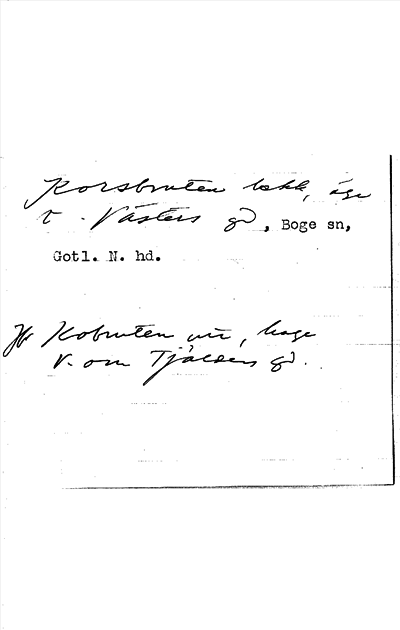 Korsbruten bebb, äga
t. Västers gd, Boge sn,
Gotl. N. hd.
Jfr Kobruten utt, hage
V. om Tjälders gd.